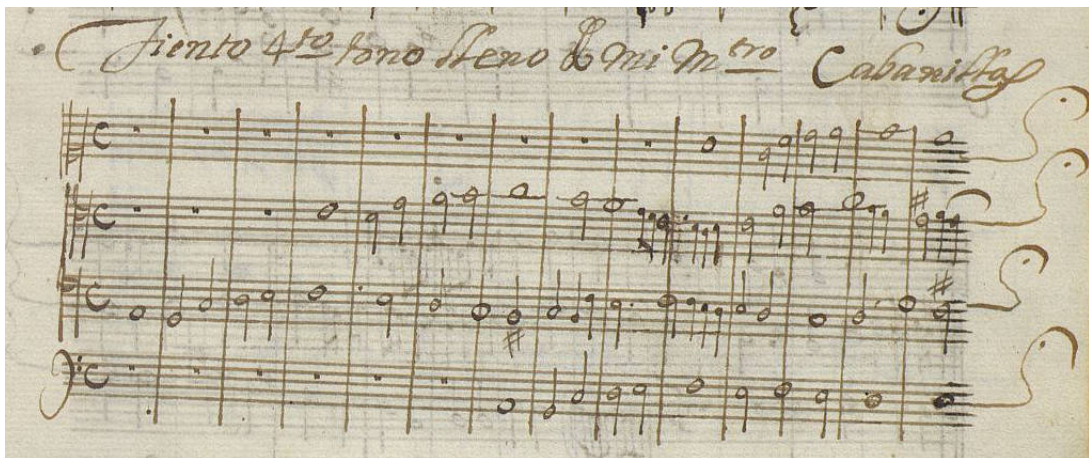 Tiento 4to tono lleno de mi Mtro Cabanillas